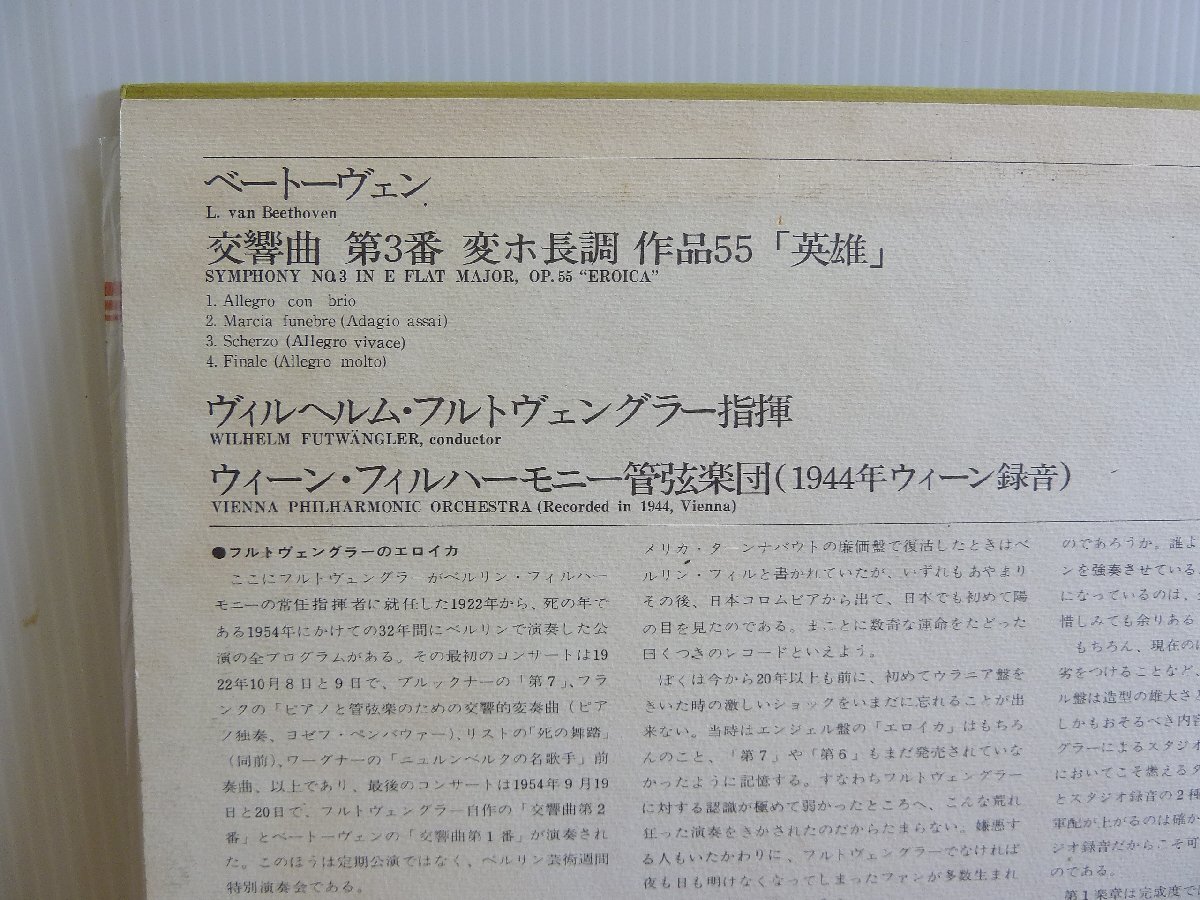 ベートーヴェン
L. van Beethoven
交響曲 第3番 変ホ長調 作品55「英雄」
SYMPHONY NO.3 IN E FLAT MAJOR, OP.55 “EROICA”
1. Allegro con brio
2. Marcia funebre (Adagio assai)
3. Scherzo (Allegro vivace)
4. Finale (Allegro molto)
ヴィルヘルム・フルトヴェングラー指揮
WILHELM FUTWÄNGLER, conductor
ウィーン・フィルハーモニー管弦楽団(1944年ウィーン録音)
VIENNA PHILHARMONIC ORCHESTRA (Recorded in 1944, Vienna)
●フルトヴェングラーのエロイカ
ここにフルトヴェングラーがベルリン・フィルハー
モニーの常任指揮者に就任した1922年から、死の年で
ある1954年にかけての32年間にベルリンで演奏した公
演の全プログラムがある。その最初のコンサートは19
22年10月8日と9日で、ブルックナーの「第7」、フラ
ンクの「ピアノと管弦楽のための交響的変奏曲(ピア
ノ独奏、ヨゼフ・ペンバウァー)、リストの「死の舞踏」
(同前)、ワーグナーの「ニュルンベルクの名歌手」前
奏曲、以上であり、最後のコンサートは1954年9月19
日と20日で、フルトヴェングラー自作の「交響曲第2
番」とベートーヴェンの「交響曲第1番」が演奏され
た。このほうは定期公演ではなく、ベルリン芸術週間
特別演奏会である。
メリカ・ターンナバウトの廉価盤で復活したときはベ
ルリン・フィルと書かれていたが、いずれもあやまり
その後、日本コロムビアから出て、日本でも初めて陽
の目を見たのである。まことに数奇な運命をたどった
曰くつきのレコードといえよう。
ぼくは今から20年以上も前に、初めてウラニア盤を
きいた時の激しいショックをいまだに忘れることが出
来ない。当時はエンジェル盤の「エロイカ」はもちろ
んのこと、「第7」や「第6」もまだ発売されていな
かったように記憶する。すなわちフルトヴェングラー
に対する認識が極めて弱かったところへ、こんな荒れ
狂った演奏をきかされたのだからたまらない。嫌悪す
る人もいたかわりに、フルトヴェングラーでなければ
夜も日も明けなくなってしまったファンが多数生まれ
のであろうか。誰よ
ンを強奏させている
になっているのは、
惜しみても余りある
もちろん、現在の
劣をつけることなど、
ル盤は造型の雄大さ
しかもおそるべき内容
グラーによるスタジオ
においてこそ燃える
とスタジオ録音の2種
軍配が上がるのは確か
ジオ録音だからこそ可
のである。
第1楽章は完成度で